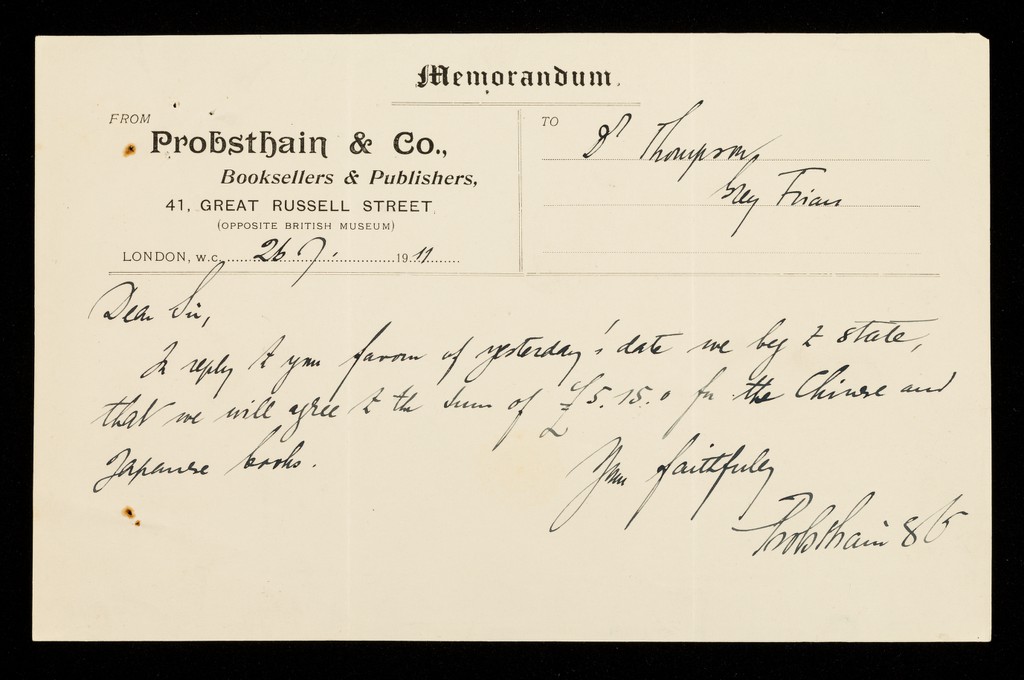 Memorandum.
FROM
Probsthain & Co.,
Booksellers & Publishers,
41, GREAT RUSSELL STREET,
(OPPOSITE BRITISH MUSEUM)
LONDON, W.C. 26 7. 1911
TO
Dr Thompson,
Grey Friars
Dear Sir,
In reply to your favour of yesterday's date we beg to state,
that we will agree to the sum of £5.15.0 for the Chinese and
Japanese books.
Yours faithfully
Probsthain & Co